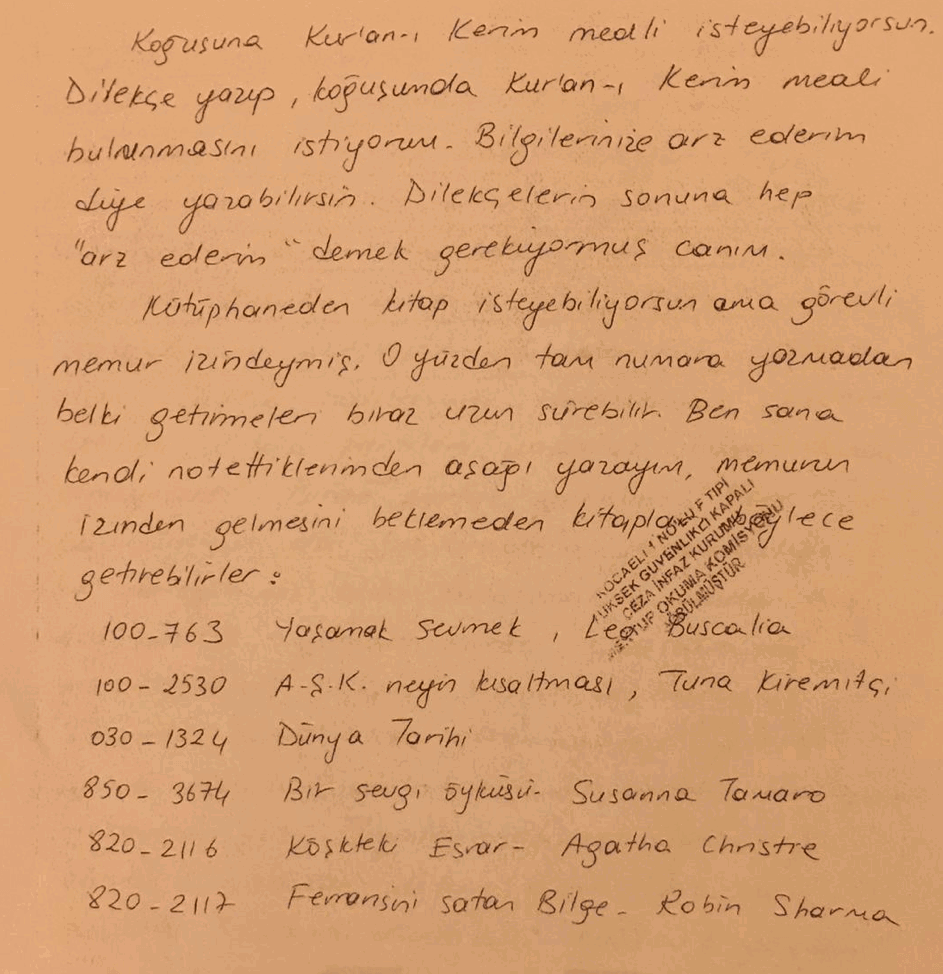 Koğuşuna Kur'an-ı Kerim meali isteyebiliyorsun.
Dilekçe yazıp, koğuşumda Kur'an-ı Kerim meali
bulunmasını istiyorum. Bilgilerinize arz ederim
diye yazabilirsin. Dilekçelerin sonuna hep
"arz ederim" demek gerekiyormuş canım.
Kütüphaneden kitap isteyebiliyorsun ama görevli
memur izindeymiş. O yüzden tam numara yazmadan
belki getirmeleri biraz uzun sürebilir. Ben sana
kendi not ettiklerimden aşağı yazayım, memurun
izinden gelmesini beklemeden kitapları böylece
getirebilirler :
KOCAELİ 1 NOLU F TİPİ
YÜKSEK GÜVENLİKLİ KAPALI
CEZA İNFAZ KURUMU
MEKTUP OKUMA KOMİSYONU
GÖRÜLMÜŞTÜR
100-763 Yaşamak Sevmek, Leo Buscalia
100-2530 A.Ş.K. neyin kısaltması, Tuna Kiremitçi
030-1324 Dünya Tarihi
850-3674 Bir sevgi öyküsü- Susanna Tamaro
820-2116 Köşkteki Esrar- Agatha Christre
820-2117 Ferrarisini satan Bilge- Robin Sharma